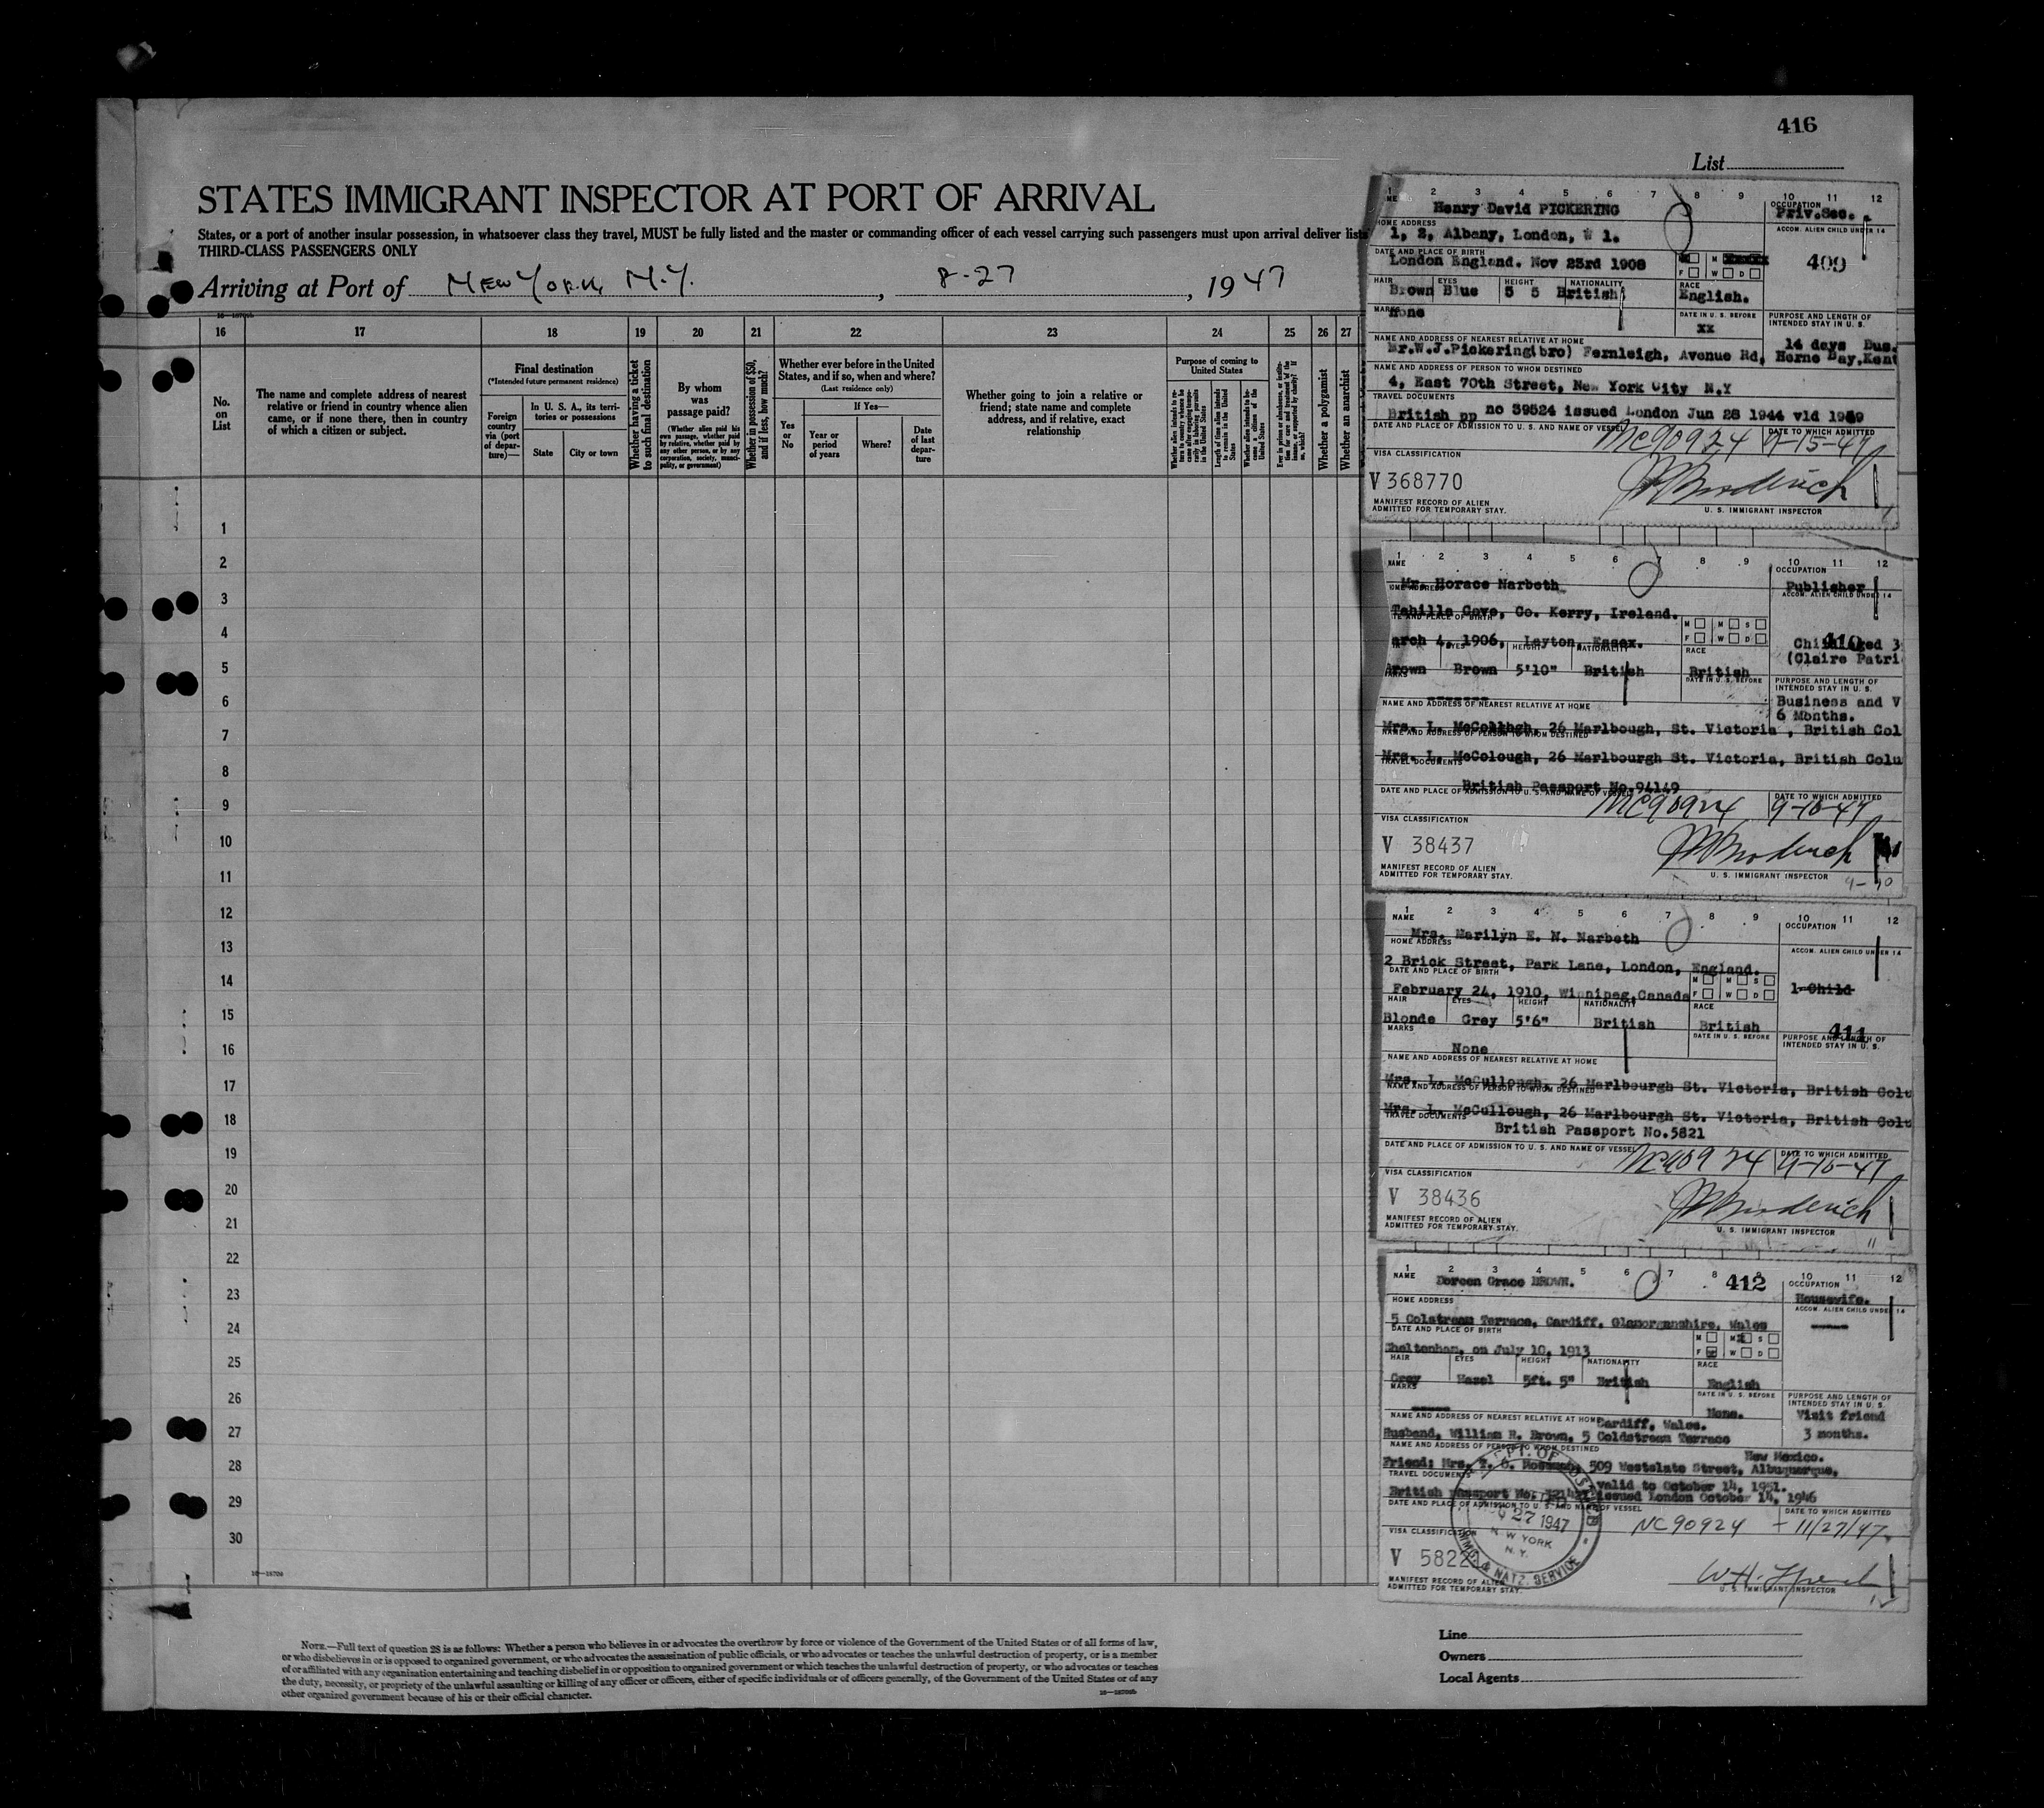 416
List
STATES IMMIGRANT INSPECTOR AT PORT OF ARRIVAL
States, or a port of another insular possession, in whatsoever class they travel, MUST be fully listed and the master or commanding officer of each vessel carrying such passengers must upon arrival deliver lists
THIRD-CLASS PASSENGERS ONLY
Arriving at Port of New York, N.Y. , 8-27 , 1947
16 17 18 19 20 21 22 23 24 25 26 27
No. on List
The name and complete address of nearest relative or friend in country whence alien came, or if none there, then in country of which a citizen or subject.
Final destination
(*Intended future permanent residence)
Foreign country via (port of depar-ture)—
In U. S. A., its terri-tories or possessions
State
City or town
Whether having a ticket to such final destination
By whom was passage paid?
(Whether alien paid his own passage, whether paid by relative, whether paid by any other person, or by any corporation, society, munici-pality, or government)
Whether in possession of $50, and if less, how much?
Whether ever before in the United States, and if so, when and where?
(Last residence only)
If Yes—
Yes or No
Year or period of years
Where?
Date of last depar-ture
Whether going to join a relative or friend; state name and complete address, and if relative, exact relationship
Purpose of coming to United States
Length of time alien intends to remain in the United States
Whether a polygamist
Whether an anarchist
1
2
3
4
5
6
7
8
9
10
11
12
13
14
15
16
17
18
19
20
21
22
23
24
25
26
27
28
29
30
NOTE.—Full text of question 28 is as follows: Whether a person who believes in or advocates the overthrow by force or violence of the Government of the United States or of all forms of law,
or who disbelieves in or is opposed to organized government, or who advocates the assassination of public officials, or who advocates or teaches the unlawful destruction of property, or is a member
of or affiliated with any organization entertaining and teaching disbelief in or opposition to organized government or which teaches the unlawful destruction of property, or who advocates or teaches
the duty, necessity, or propriety of the unlawful assaulting or killing of any officer or officers, either of specific individuals or of officers generally, of the Government of the United States or of any
other organized government because of his or their official character.
1 2 3 4 5 6 7 8 9 10 11 12
Henry David PICKERING
OCCUPATION
Priv.Sec.
HOME ADDRESS
ACCOM. ALIEN CHILD UNDER 14
1, 2, Albany, London, W 1.
DATE AND PLACE OF BIRTH
London England. Nov 23rd 1908
409
M M F W D
HAIR EYES HEIGHT NATIONALITY RACE
Brown Blue 5 5 British English.
MARKS
None
DATE IN U. S. BEFORE
xx
PURPOSE AND LENGTH OF INTENDED STAY IN U. S.
14 days Bus.
NAME AND ADDRESS OF NEAREST RELATIVE AT HOME
Mr.W.J.Pickering(bro) Fernleigh, Avenue Rd, Herne Bay,Kent
NAME AND ADDRESS OF PERSON TO WHOM DESTINED
4, East 70th Street, New York City N.Y
TRAVEL DOCUMENTS
British pp no 39524 issued London Jun 28 1944 vld 1949
DATE AND PLACE OF ADMISSION TO U. S. AND NAME OF VESSEL
DATE TO WHICH ADMITTED
NC90924 9-15-47
VISA CLASSIFICATION
V 368770
MANIFEST RECORD OF ALIEN
ADMITTED FOR TEMPORARY STAY.
U. S. IMMIGRANT INSPECTOR
1 2 3 4 5 6 7 8 9 10 11 12
NAME
OCCUPATION
Mr. Horace Narbeth
Publisher
ACCOM. ALIEN CHILD UNDER 14
Tahilla Cove, Co. Kerry, Ireland.
M M S
F W D
410
Child aged 3
(Claire Patri
arch 4, 1906, Leyton, Essex.
EYES HEIGHT NATIONALITY RACE
Brown Brown 5'10" British British
DATE IN U. S. BEFORE
PURPOSE AND LENGTH OF INTENDED STAY IN U. S.
Business and V
6 Months.
NAME AND ADDRESS OF NEAREST RELATIVE AT HOME
Mrs. L. McCollhgh, 26 Marlbough, St. Victoria , British Col
NAME AND ADDRESS OF PERSON TO WHOM DESTINED
Mrs. L. McColough, 26 Marlbourgh St. Victoria, British Colu
TRAVEL DOCUMENTS
British Passport No.94149
DATE AND PLACE OF ADMISSION TO U. S. AND NAME OF VESSEL
DATE TO WHICH ADMITTED
NC90924 9-10-47
VISA CLASSIFICATION
V 38437
MANIFEST RECORD OF ALIEN
ADMITTED FOR TEMPORARY STAY.
U. S. IMMIGRANT INSPECTOR
1 2 3 4 5 6 7 8 9 10 11 12
NAME
OCCUPATION
Mrs. Marilyn E. N. Narbeth
HOME ADDRESS
ACCOM. ALIEN CHILD UNDER 14
2 Brick Street, Park Lane, London, England.
DATE AND PLACE OF BIRTH
M M S
F W D
1 Child
February 24, 1910, Winnipeg,Canada
HAIR EYES HEIGHT NATIONALITY RACE
Blonde Grey 5'6" British British
411
MARKS
DATE IN U. S. BEFORE
PURPOSE AND LENGTH OF INTENDED STAY IN U. S.
None
NAME AND ADDRESS OF NEAREST RELATIVE AT HOME
Mrs. L. McCullough, 26 Marlbourgh St. Victoria, British Colu
NAME AND ADDRESS OF PERSON TO WHOM DESTINED
Mrs. L. McCullough, 26 Marlbourgh St. Victoria, British Colu
TRAVEL DOCUMENTS
British Passport No.5821
DATE AND PLACE OF ADMISSION TO U. S. AND NAME OF VESSEL
DATE TO WHICH ADMITTED
NC90924 9-10-47
VISA CLASSIFICATION
V 38436
MANIFEST RECORD OF ALIEN
ADMITTED FOR TEMPORARY STAY.
U. S. IMMIGRANT INSPECTOR
1 2 3 4 5 6 7 8 9 10 11 12
NAME
Doreen Grace BROWN.
412
OCCUPATION
Housewife.
HOME ADDRESS
ACCOM. ALIEN CHILD UNDER 14
5 Colstream Terrace, Cardiff, Glamorganshire, Wales
DATE AND PLACE OF BIRTH
M M S
F W D
Cheltenham, on July 10, 1913
HAIR EYES HEIGHT NATIONALITY RACE
Grey Hazel 5ft. 5" British English
MARKS
DATE IN U. S. BEFORE
None.
PURPOSE AND LENGTH OF INTENDED STAY IN U. S.
Visit friend
3 months.
NAME AND ADDRESS OF NEAREST RELATIVE AT HOME
Cardiff, Wales.
Husband, William R. Brown, 5 Coldstream Terrace
NAME AND ADDRESS OF PERSON TO WHOM DESTINED
New Mexico.
Friend: Mrs. 509 Westelate Street, Albuquerque,
TRAVEL DOCUMENTS
valid to October 14, 1951.
British passport No. issued London October 14, 1946
DATE AND PLACE OF ADMISSION TO U. S. AND NAME OF VESSEL
DATE TO WHICH ADMITTED
NC90924 - 11/27/47
27 1947
N W YORK
N. Y.
IMMG. & NATZ. SERVICE
VISA CLASSIFICATION
V 5822
MANIFEST RECORD OF ALIEN
ADMITTED FOR TEMPORARY STAY.
U. S. IMMIGRANT INSPECTOR
Line
Owners
Local Agents